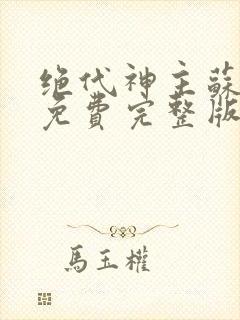 绝代神主蘇
免費完整版
馬玉權